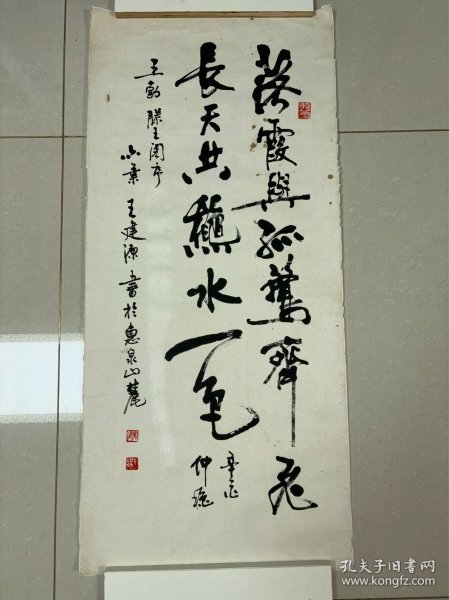 落霞與孤鶩齊飛
長天共龝水一色
仲瑞
雅正
王勃滕王阁序
王建源書於惠泉山麓
孔夫子旧书网
www.kongfz.com